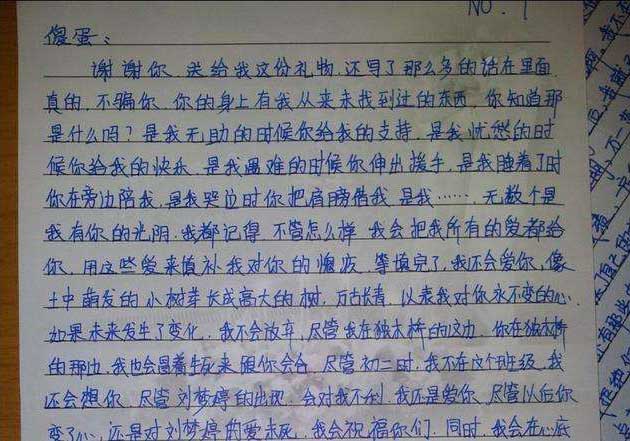 NO. 1
傻蛋：
谢谢你 送给我这份礼物，还写了那么多的话在里面
真的，不骗你，你的身上有我从来未找到过的东西，你知道那
是什么吗？是我无助的时候你给我的支持，是我忧愁的时
候你给我的快乐，是我遇难的时候你伸出援手，是我睡着了时
你在旁边陪我，是我哭泣时你把肩膀借我，是我……，无数个是
我有你的光阴，我都记得，不管怎么样，我会把我所有的爱都给
你，用这些爱来填补我对你的愧疚，等填完了，我还会爱你，像
土中萌发的小树芽长成高大的树，万古长青，以表我对你永不变的心
如果未来发生了变化，我不会放弃，尽管我在独木桥的这边，你在独木桥
的那边，我也会冒着生死来跟你会合，尽管初二时，我不在这个班级，我
还会想你，尽管刘梦婷的出现，会对我不利，我还是爱你，尽管以后你
变了心，还是对刘梦婷的爱未死，我会祝福你们，同时，我会在心底